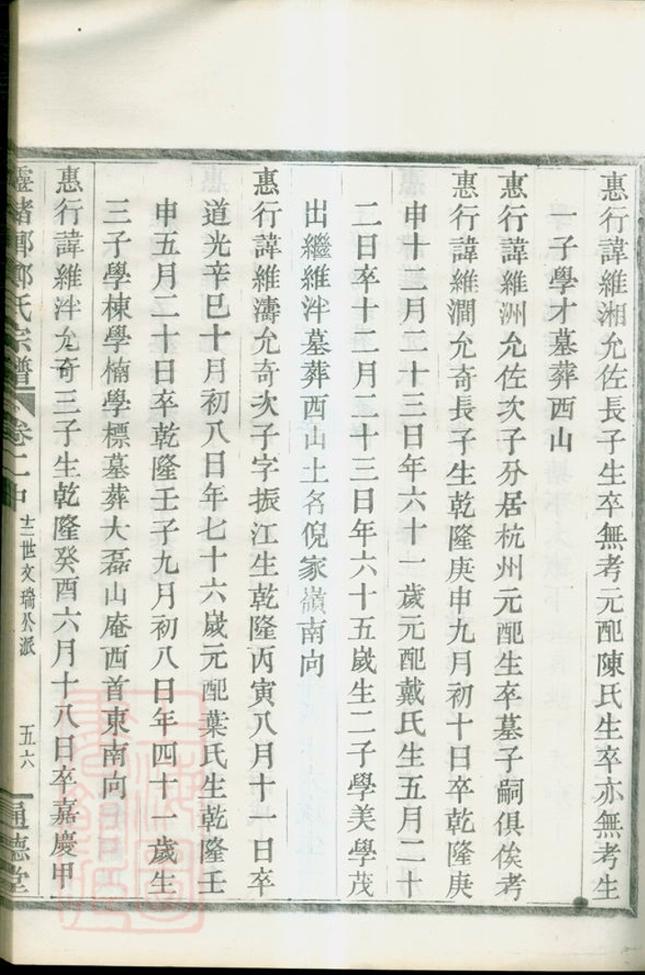 惠行諱維湘允佐長子生卒無考元配陳氏生卒亦無考生
一子學才墓葬西山
惠行諱維洲允佐次子分居杭州元配生卒墓子嗣俱俟考
惠行諱維澗允奇長子生乾隆庚申九月初十日卒乾隆庚
申十二月二十三日年六十一歲元配戴氏生五月二十
二日卒十二月二十三日年六十五歲生二子學美學茂
出繼維泮墓葬西山土名倪家嶺南向
惠行諱維濤允奇次子字振江生乾隆丙寅八月十一日卒
道光辛巳十月初八日年七十六歲元配葉氏生乾隆壬
申五月二十日卒乾隆壬子九月初八日年四十一歲生
三子學棟學楠學標墓葬大磊山庵西首東南向
惠行諱維泮允奇三子生乾隆癸酉六月十八日卒嘉慶甲
鄭氏宗譜 卷二中 十三世文瑞公派 五六 通德堂